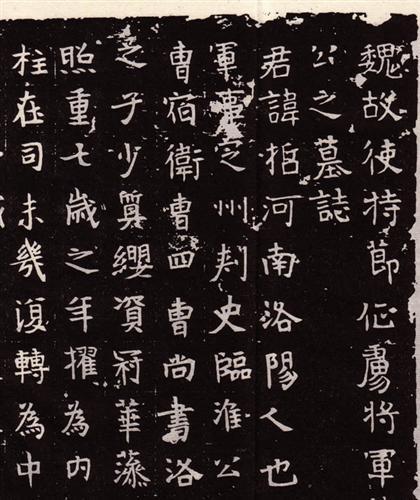 魏故使持節征虜將軍
公之墓誌
君諱河南洛陽人也
軍事定州刾史臨淮公
曹宿衛曹四曹尚書洛
之子少簉纓資冠華藻
照重七歲之年擢為內
柱在司未幾復轉為中